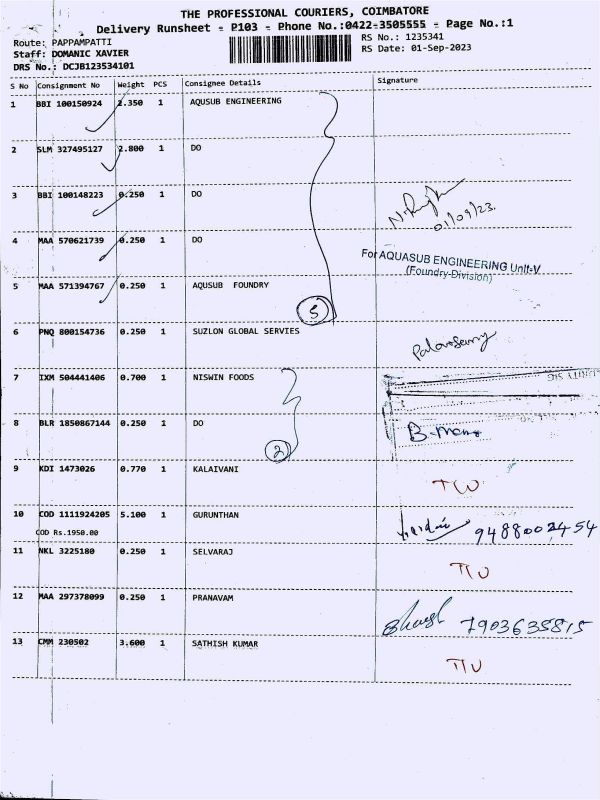 THE PROFESSIONAL COURIERS, COIMBATORE
Delivery Runsheet - P103 - Phone No.:0422-3505555 - Page No.:1
Route: PAPPAMPATTI RS No.: 1235341
Staff: DOMANIC XAVIER RS Date: 01-Sep-2023
DRS No.: DCJB123534101
S No Consignment No Weight PCS Consignee Details Signature
1 BBI 100150924 2.350 1 AQUSUB ENGINEERING
2 SLM 327495127 2.800 1 DO
3 BBI 100148223 0.250 1 DO
01/09/23.
4 MAA 570621739 0.250 1 DO
For AQUASUB ENGINEERING Unit-V
(Foundry-Division)
5 MAA 571394767 0.250 1 AQUSUB FOUNDRY
5
6 PNQ 800154736 0.250 1 SUZLON GLOBAL SERVIES
7 IXM 504441406 0.700 1 NISWIN FOODS
8 BLR 1850867144 0.250 1 DO
2
9 KDI 1473026 0.770 1 KALAIVANI
10 COD 1111924205 5.100 1 GURUNTHAN
COD Rs.1950.00 9488002454
11 NKL 3225180 0.250 1 SELVARAJ
12 MAA 297378099 0.250 1 PRANAVAM
7903635815
13 CMM 230502 3.600 1 SATHISH KUMAR